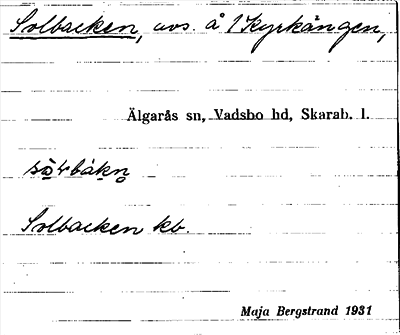 Solbacken, avs. å Kyrkängen,
Älgarås sn, Vadsbo hd, Skarab. l.
Solbacken kb.
Maja Bergstrand 1931